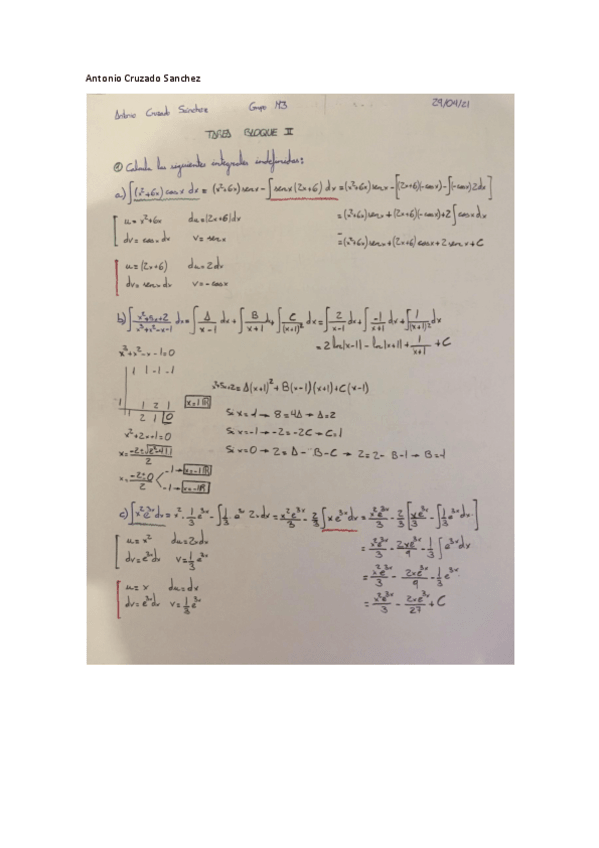 Antonio Cruzado Sanchez
Antonio Cruzado Sánchez Grupo M3 29/04/21
TAREA BLOQUE II
① Calcula las siguientes integrales indefinidas:
a) ∫(x²+6x) cosx dx = (x²+6x) senx - ∫senx(2x+6) dx = (x²+6x) senx - [(2x+6)(-cosx) - ∫(-cosx)2dx]
u = x²+6x du = (2x+6)dx = (x²+6x) senx + (2x+6)(-cosx) + 2∫cosx dx
dv = cosx dx v = senx = (x²+6x) senx + (2x+6) cosx + 2senx + C
u = (2x+6) du = 2dx
dv = senx dx v = -cosx
b) ∫(x²+5x+2)/(x³+x²-x-1) dx = ∫A/(x-1) dx + ∫B/(x+1) dx + ∫C/(x+1)² dx = ∫2/(x-1) dx + ∫-1/(x+1) dx + ∫1/(x+1)² dx
= 2ln|x-1| - ln|x+1| + 1/(x+1) + C
x³+x²-x-1=0
1 1 -1 -1
1 1 2 1
1 2 1 0 x=1
x²+5x+2 = A(x+1)² + B(x-1)(x+1) + C(x-1)
Si x=1 → 8=4A → A=2
x²+2x+1=0 Si x=-1 → -2=-2C → C=1
Si x=0 → 2=A-B-C → 2=2-B-1 → B=-1
x = (-2±0)/2
c) ∫x²e³ˣdx = x²·1/3 e³ˣ - ∫1/3 e³ˣ 2xdx = x²e³ˣ/3 - 2/3 ∫xe³ˣdx = x²e³ˣ/3 - 2/3 [xe³ˣ/3 - ∫1/3 e³ˣdx]
u = x² du = 2xdx = x²e³ˣ/3 - 2xe³ˣ/9 - 1/3 ∫e³ˣdx
dv = e³ˣdx v = 1/3 e³ˣ = x²e³ˣ/3 - 2xe³ˣ/9 - 1/3 e³ˣ
u = x du = dx = x²e³ˣ/3 - 2xe³ˣ/27 + C
dv = e³ˣdx v = 1/3 e³ˣ